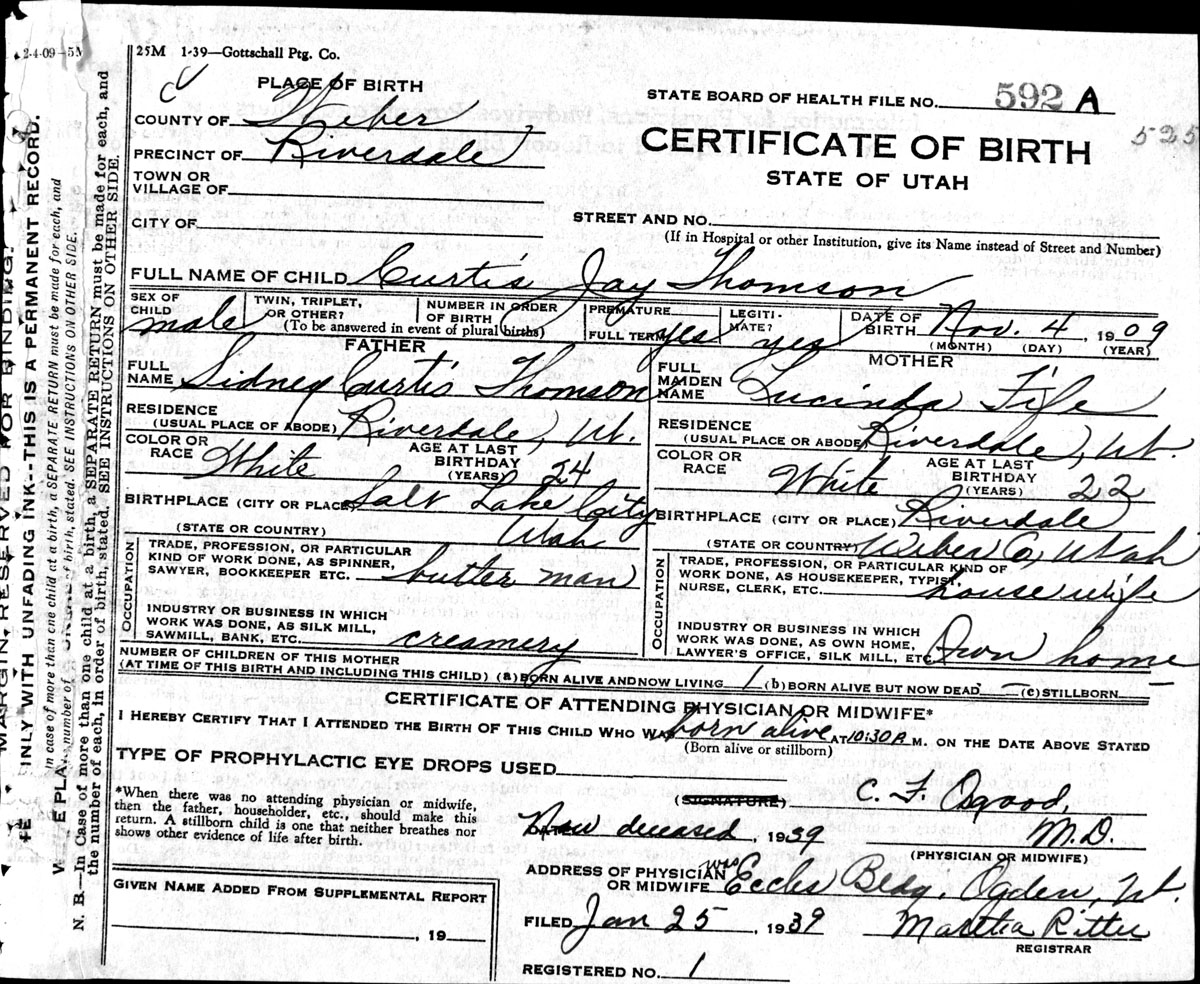 2-4-09-5M
25M 1-39—Gottschall Ptg. Co.
PLACE OF BIRTH
COUNTY OF Weber
PRECINCT OF Riverdale
TOWN OR
VILLAGE OF
CITY OF
STATE BOARD OF HEALTH FILE NO. 592 A
525
CERTIFICATE OF BIRTH
STATE OF UTAH
STREET AND NO.
(If in Hospital or other Institution, give its Name instead of Street and Number)
FULL NAME OF CHILD Curtis Jay Thomson
SEX OF
CHILD male
TWIN, TRIPLET,
OR OTHER?
NUMBER IN ORDER
OF BIRTH
(To be answered in event of plural births)
PREMATURE
FULL TERM yes
LEGITI-
MATE? yes
DATE OF
BIRTH Nov. 4, 1909
(MONTH) (DAY) (YEAR)
FATHER
FULL
NAME Sidney Curtis Thomson
RESIDENCE
(USUAL PLACE OF ABODE) Riverdale, Ut.
COLOR OR
RACE White
AGE AT LAST
BIRTHDAY
(YEARS) 24
BIRTHPLACE (CITY OR PLACE) Salt Lake City
(STATE OR COUNTRY) Utah
OCCUPATION
TRADE, PROFESSION, OR PARTICULAR
KIND OF WORK DONE, AS SPINNER,
SAWYER, BOOKKEEPER ETC. butter man
INDUSTRY OR BUSINESS IN WHICH
WORK WAS DONE, AS SILK MILL,
SAWMILL, BANK, ETC. creamery
MOTHER
FULL
MAIDEN
NAME Lucinda Fife
RESIDENCE
(USUAL PLACE OR ABODE) Riverdale, Ut.
COLOR OR
RACE White
AGE AT LAST
BIRTHDAY
(YEARS) 22
BIRTHPLACE (CITY OR PLACE) Riverdale
(STATE OR COUNTRY) Weber Co, Utah
OCCUPATION
TRADE, PROFESSION, OR PARTICULAR KIND OF
WORK DONE, AS HOUSEKEEPER, TYPIST,
NURSE, CLERK, ETC. housewife
INDUSTRY OR BUSINESS IN WHICH
WORK WAS DONE, AS OWN HOME,
LAWYER'S OFFICE, SILK MILL, ETC. Own home
NUMBER OF CHILDREN OF THIS MOTHER
(AT TIME OF THIS BIRTH AND INCLUDING THIS CHILD) (a) BORN ALIVE AND NOW LIVING 1 (b) BORN ALIVE BUT NOW DEAD — (c) STILLBORN —
CERTIFICATE OF ATTENDING PHYSICIAN OR MIDWIFE*
I HEREBY CERTIFY THAT I ATTENDED THE BIRTH OF THIS CHILD WHO WAS born alive AT 10:30 A M. ON THE DATE ABOVE STATED
(Born alive or stillborn)
TYPE OF PROPHYLACTIC EYE DROPS USED
*When there was no attending physician or midwife,
then the father, householder, etc., should make this
return. A stillborn child is one that neither breathes nor
shows other evidence of life after birth.
(SIGNATURE) C. F. Osgood,
Now deceased, 1939 M.D.
(PHYSICIAN OR MIDWIFE)
ADDRESS OF PHYSICIAN
OR MIDWIFE was Eccles Bldg, Ogden, Ut.
FILED Jan 25, 1939 Martha Ritter
REGISTRAR
REGISTERED NO. 1
GIVEN NAME ADDED FROM SUPPLEMENTAL REPORT
, 19
MARGIN RESERVED FOR BINDING.
INLY WITH UNFADING INK-THIS IS A PERMANENT RECORD.
In case of more than one child at a birth, a SEPARATE RETURN must be made for each, and
number of birth, stated. SEE INSTRUCTIONS ON OTHER SIDE.
N. B.—In Case of more than one child at a birth, a SEPARATE RETURN must be made for each, and
the number of each, in order of birth, stated, SEE INSTRUCTIONS ON OTHER SIDE.